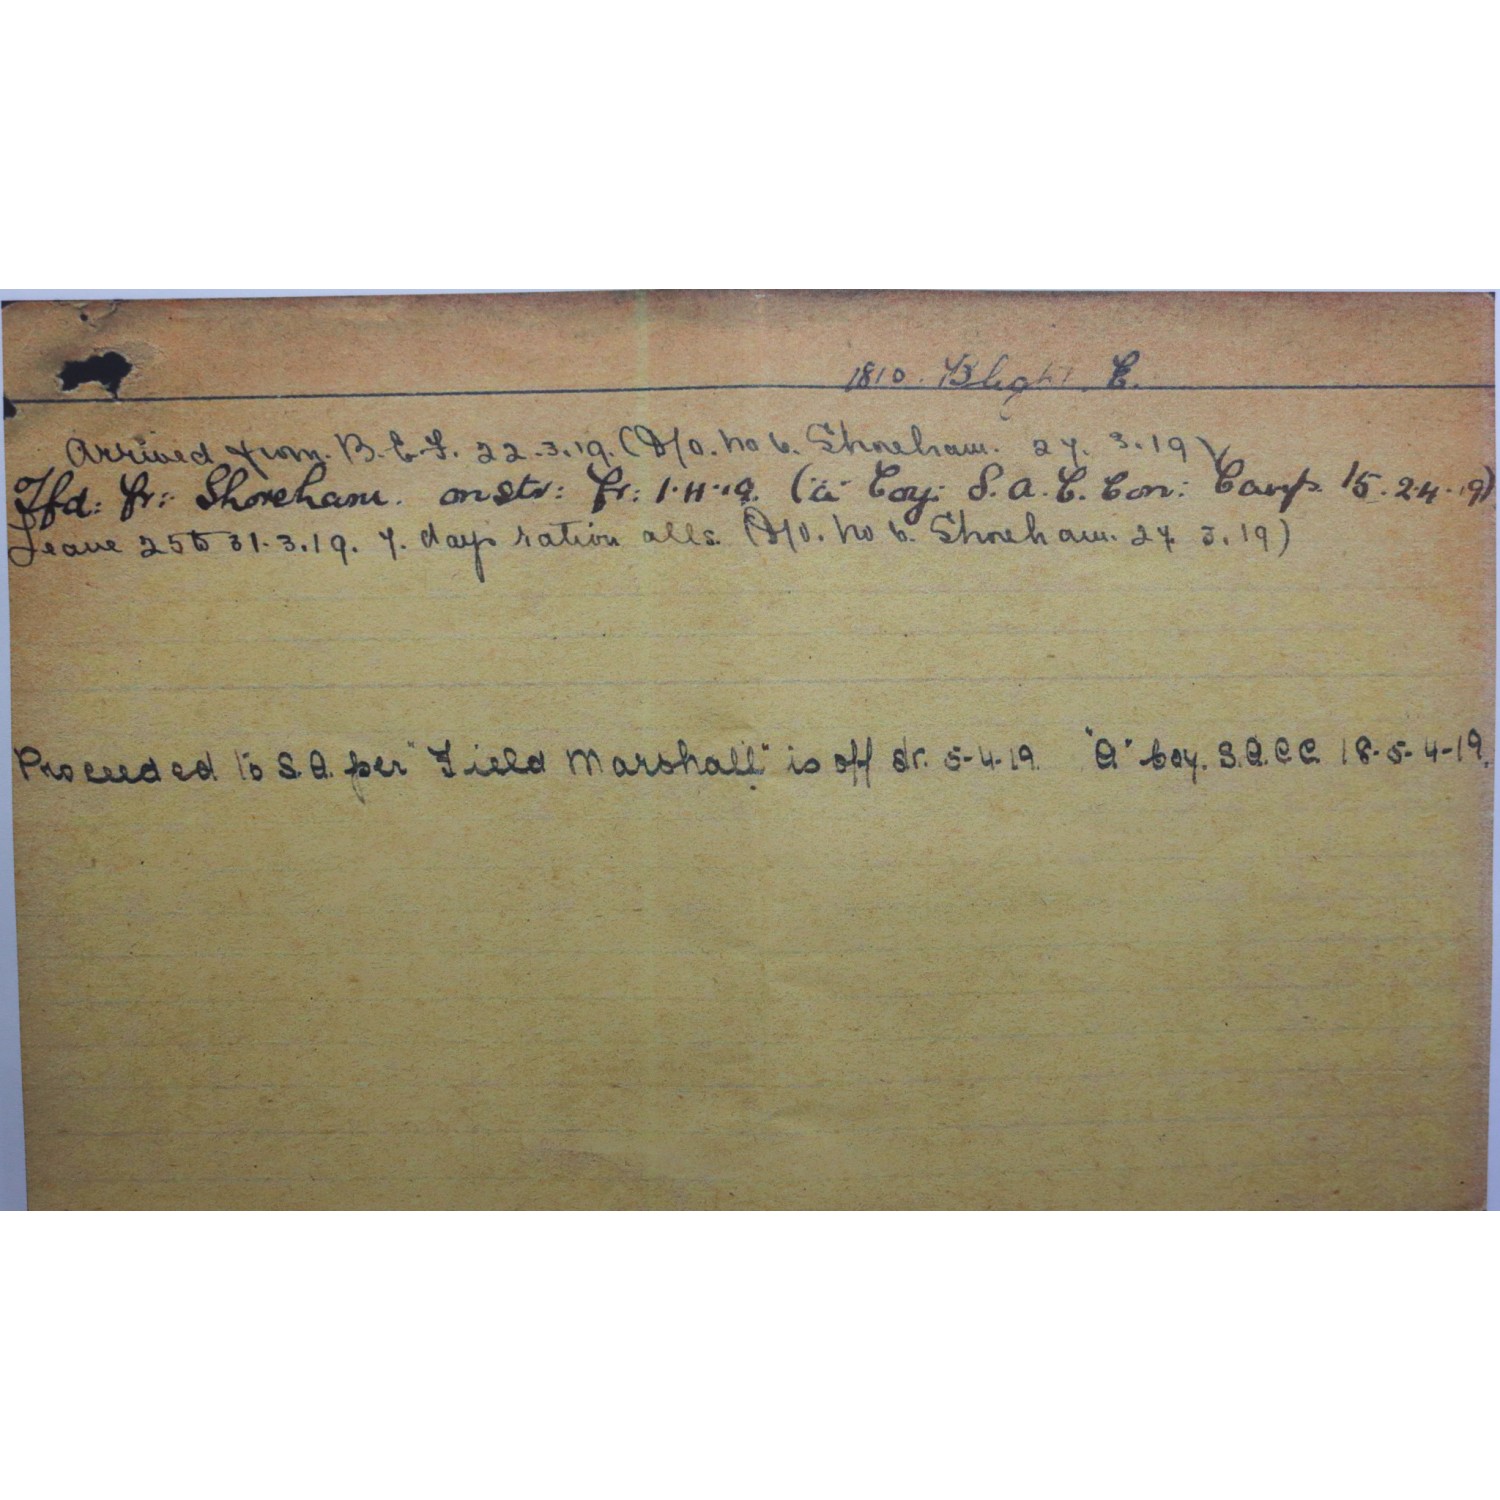 1810. Blight C.
Arrived from. B.E.F. 22.3.19. (D/O. No 6. Shoreham. 27. 3.19)
Tfd: fr: Shoreham. on str: fr: 1.4.19. ("a" Coy: S.A.C. Con: Camp. 15. 2.4.19)
Leave 25 to 31.3.19. 7. days ration alls. (D/O. No 6. Shoreham. 27. 3.19)
Proceeded to S.A. per "Field Marshall" is off str. 5-4-19. "A" Coy. S.A.C.C. 18-5-4-19.